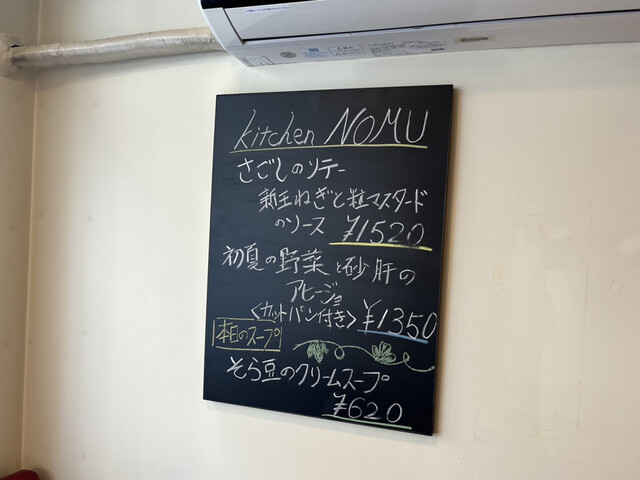 kitchen NOMU
さごしのソテー
新玉ねぎと粒マスタード
のソース ¥1520
初夏の野菜と砂肝の
アヒージョ
<カットパン付き> ¥1350
本日のスープ
そら豆のクリームスープ
¥620